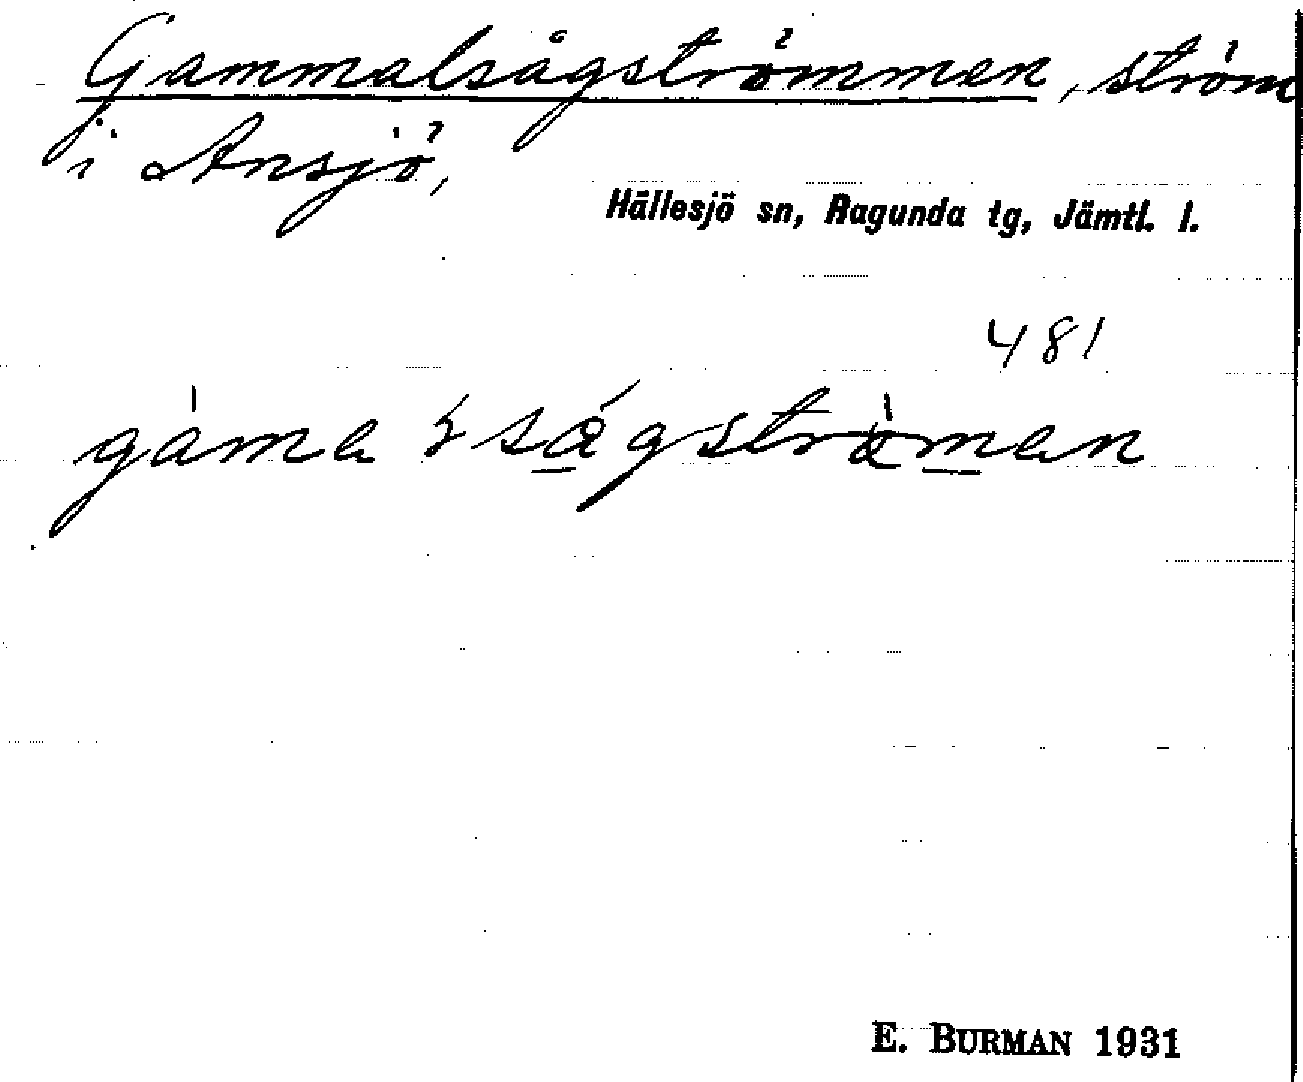 Gammalsågströmmen, ström
i Ansjö,
Hällesjö sn, Ragunda tg, Jämtl. l.
481
E. BURMAN 1931